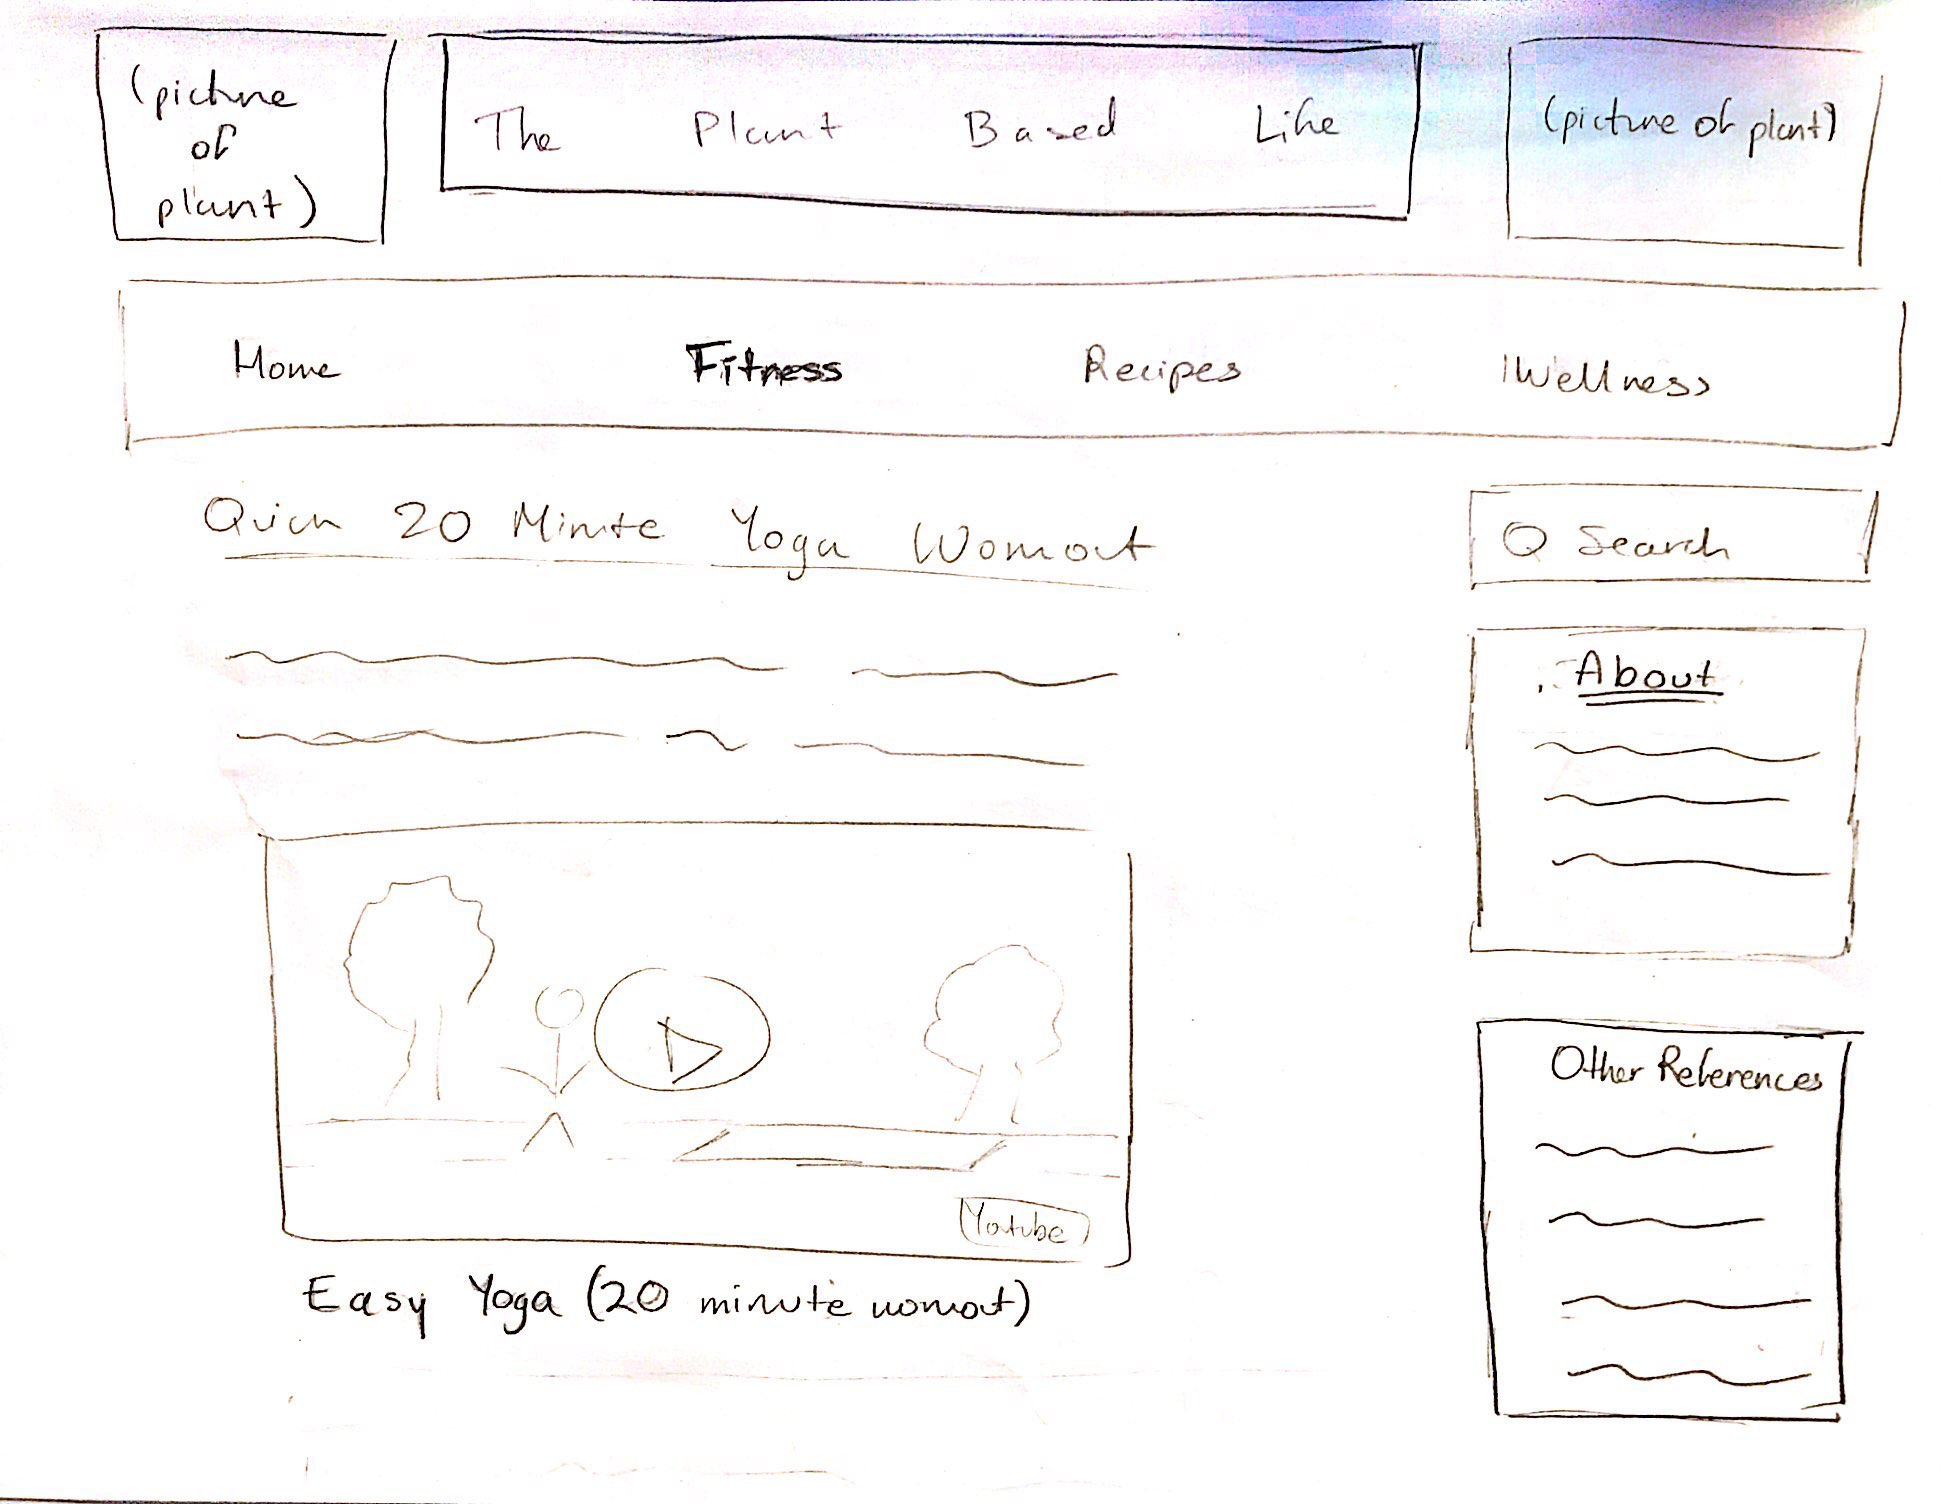 (picture
of
plant)
The Plant Based Life
(picture of plant)
Home Fitness Recipes Wellness
Quick 20 Minute Yoga Workout
Search
About
Youtube
Easy Yoga (20 minute workout)
Other References